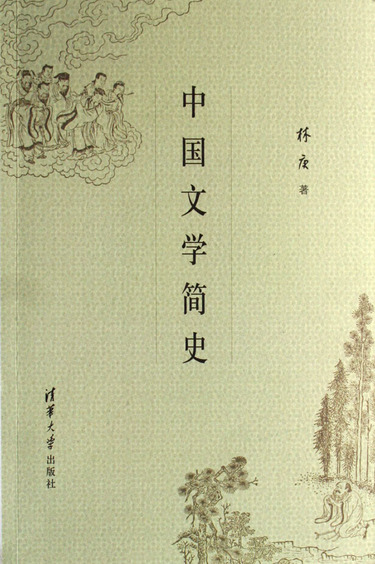 中国文学简史
林庚 著
清华大学出版社